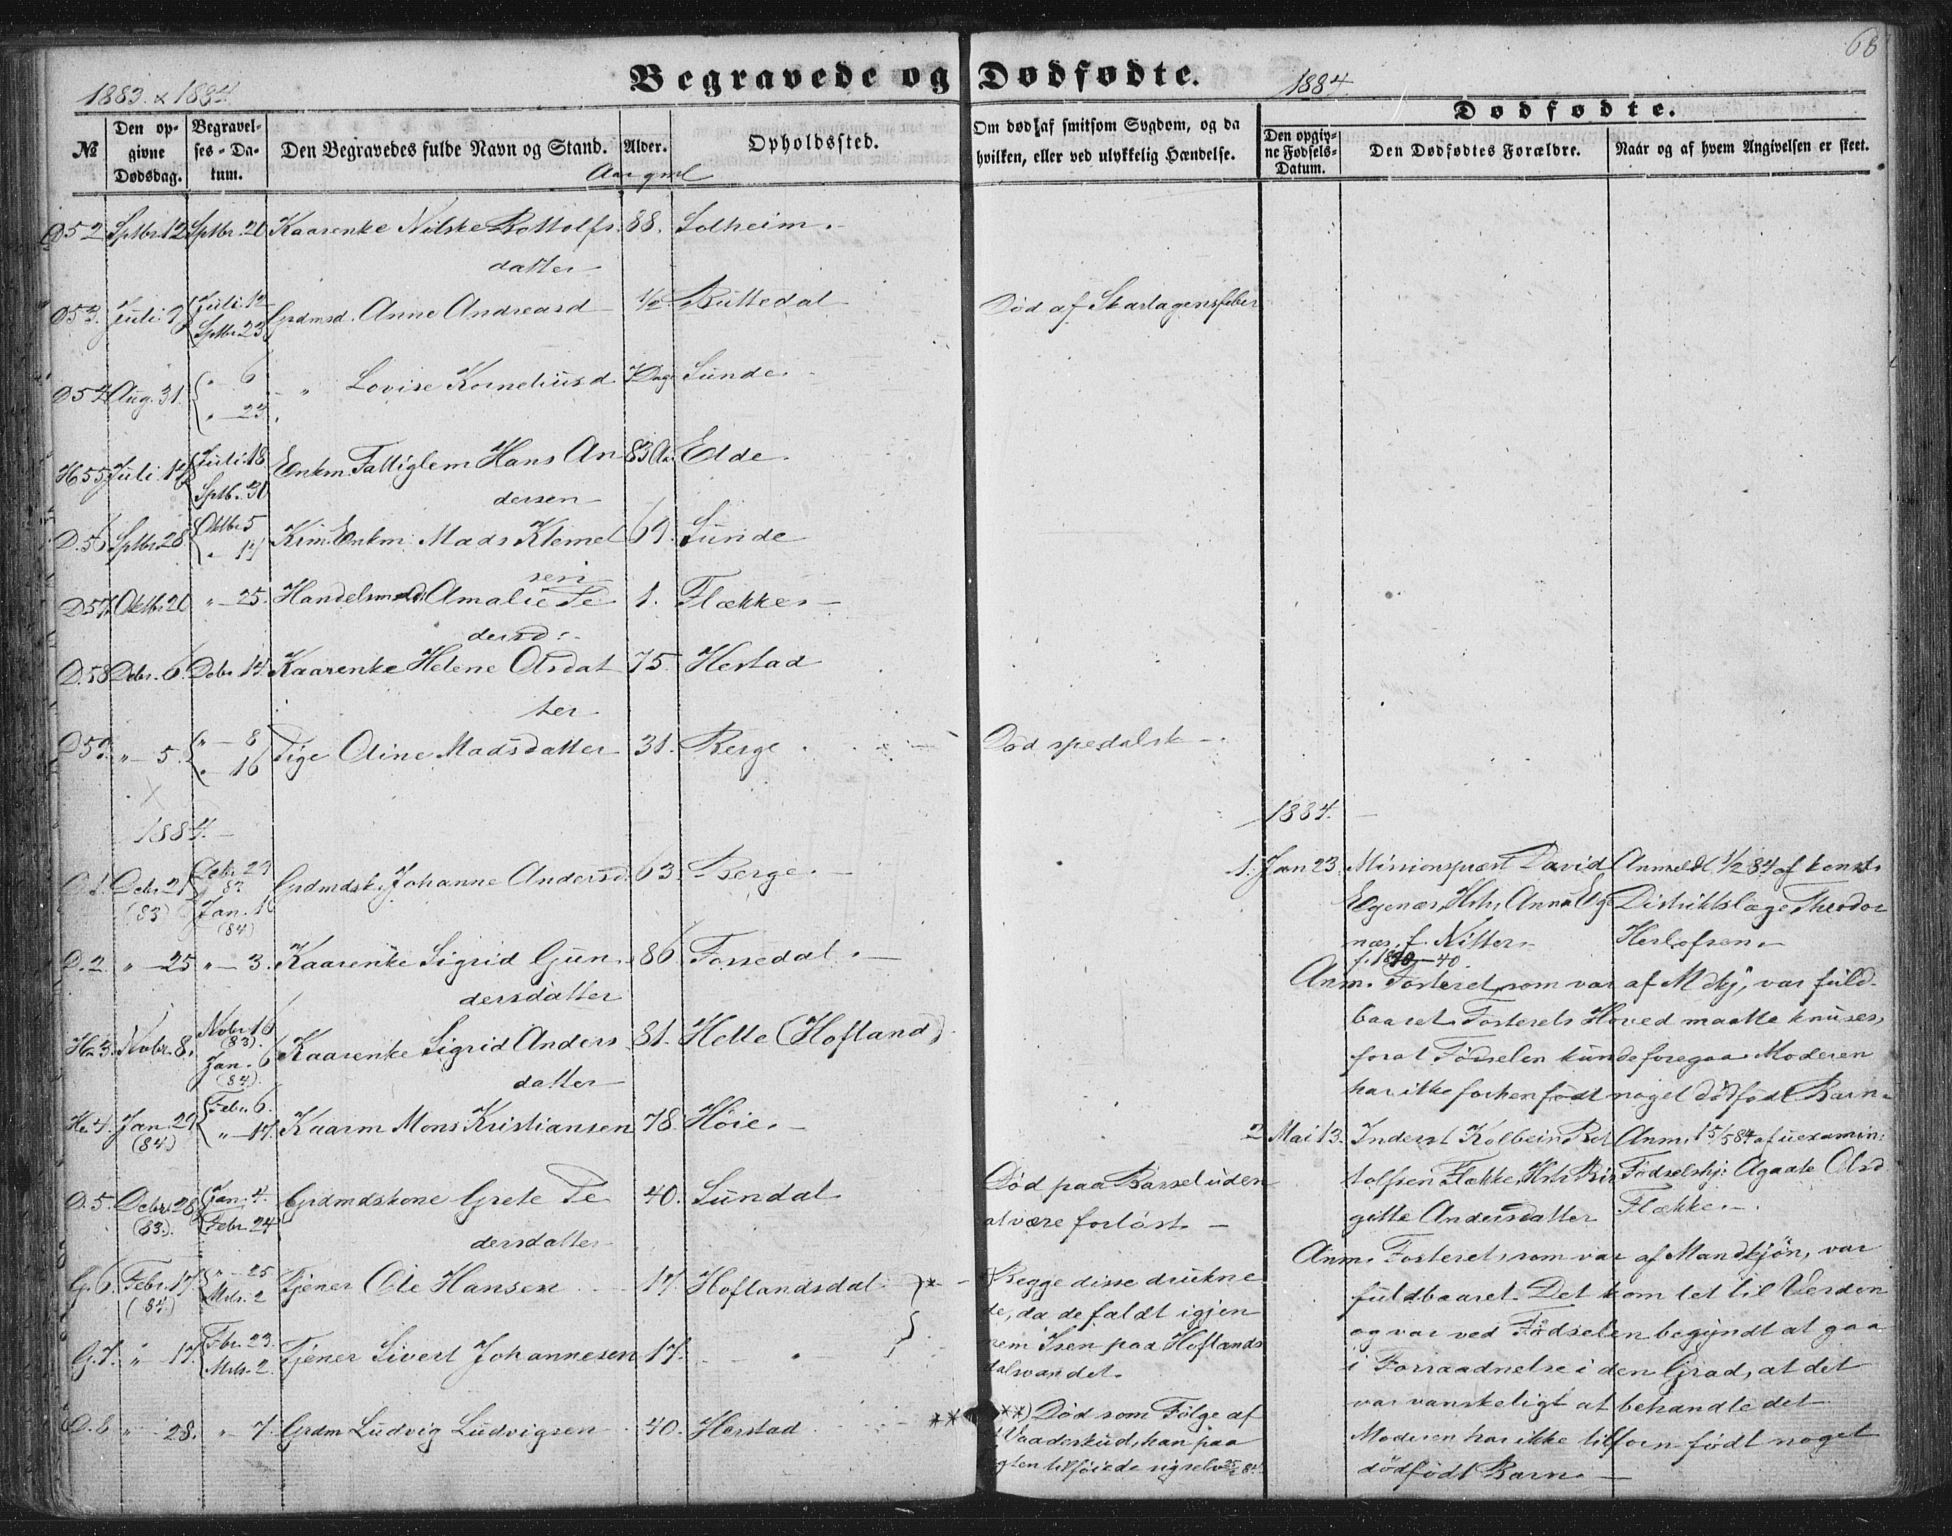 68
Begravede og Dødfødte.
1883 & 1884.
1884.
№
Den opgivne Dødsdag.
Begravelses-Datum.
Den Begravedes fulde Navn og Stand.
Alder.
Aar gml
Opholdssted.
Om død af smitsom Sygdom, og da
hvilken, eller ved ulykkelig Hændelse.
Dødfødte.
Den opgivne Fødsels-Datum.
Den Dødfødtes Forældre.
Naar og af hvem Angivelsen er skeet.
D 52 Septbr. 12 Septbr. 20 Kaarenke Nilske Bottolfs 88. Solheim.
datter
D 53. Juli 9 Juli 12 Septbr. 23 Grdmsd. Anne Andreasd ½ Buttedal Død af Skarlagensfeber
D 54 Aug. 31. " 6 " 23. " Lovise Korneliusd 7 Dag Sunde.
H 55 Juli 14 Juli 18 Septb. 30 Enkm Fattiglem Hans An 83 Aar Elde.
dersen
D. 56 Septbr 28 Oktbr 5 " 14 Enkm. Mads Klemet 69. Sunde
sen
D 57. Oktbr 20 " 25. Handelsmd. Amalie Pe 1. Flække
dersd.
D. 58 Decbr. 6. Decbr 14. Kaarenke Helene Olsdat 75. Hestad
ter
D 59. " 5. " 8 " 16 Pige Oline Madsdatter 31. Berge Død spedalsk
1884.
1884.
D. 1 Decbr. 21 (83) Decbr. 29 83 Jan. 16 (84) Grdmdsk. Johanne Andersd. 63. Berge.
D. 2. " 25 " 3. Kaarenke Sigrid Gun 86 Fossedal.
dersdatter
He 3. Novbr. 8. Novbr. 16 (83) Jan. 6 (84) Kaarenke Sigrid Anders 81. Helle (Hofland)
datter
He 4. Jan. 29 (84) Febr. 6. " 17. Kaarm Mons Kristiansen 78. Høie.
D. 5. Decbr. 28 (83.) Jan. 4. Febr. 24 Grdmdskone Grete Pe 40. Sundal Død paa Barsel uden
dersdatter at være forløst.
G. 6. Febr. 17. (84) " 25 Mrts. 2 Tjener Ole Hansen 17. Hoflandsdal *
G. 7. " 17. Fbr. 23. Mrts. 2. Tjener Sivert Johannesen 17. "
Begge disse druknede, da de faldt igjen
nem Isen paa Hoflands
dalsvandet.
D. 8 " 28. " 7. Grdm Ludvig Ludvigsen 40. Hestad **
**) Død som Følge af
Vaadeskud, han paa
Jagten tilføiede sig selv
1. Jan 23. Missionsprest David
Egenæs, Hstr. Anna Eg
næs f. Nitter
40.
Anmeldt ½ 84 af konst.
Distriktslæge Theodor
Herlofsen.
Anm. Fosteret, som var af Mdkj, var fuld
baaret. Fosterets Hoved maatte knuses,
forat Fødselen kunde foregaa. Moderen
har ikke forhen født noget dødfødt Barn.
2 Mai 13. Inderst Kolbein Bot
tolfsen Flække, Hstr Bir
gitte Andersdatter
Anm. 15/5 84 af uexamin.
Fødselshj. Agaate Olsd
Flække.
Anm. Fosteret, som var af Mandkjøn, var
fuldbaaret. Det kom let til Verden
og var ved Fødselen begyndt at gaa
i Forraadnelse i den Grad, at det
var vanskeligt at behandle det
Moderen har ikke tilforn født noget
dødfødt Barn.